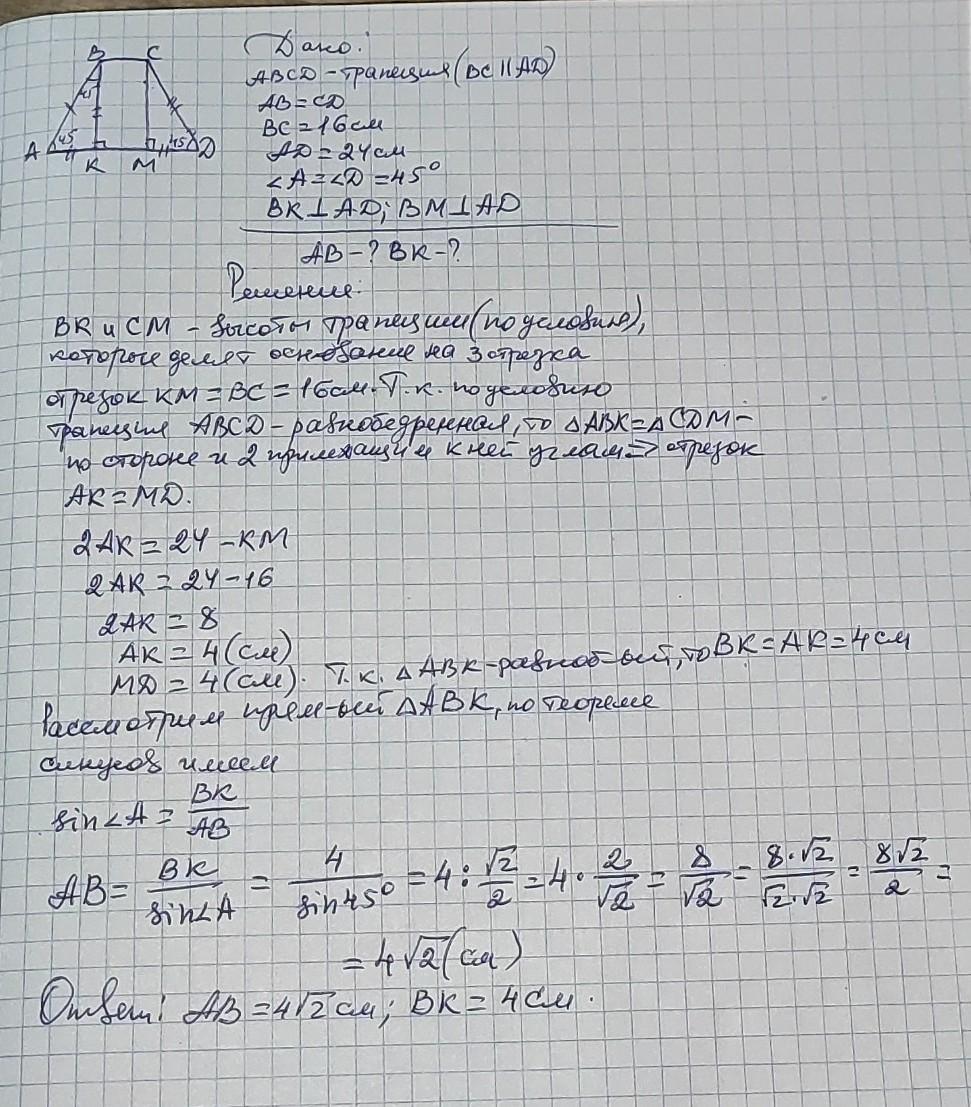 B C
45
A 45 45 D
K M
Дано:
ABCD - трапеция (BC || AD)
AB = CD
BC = 16 см
AD = 24 см
∠A = ∠D = 45°
BK ⊥ AD; BM ⊥ AD
AB - ? BK - ?
Решение:
BK и CM - высоты трапеции (по условию),
которые делят основание на 3 отрезка
отрезок KM = BC = 16 см. Т.к. по условию
трапеция ABCD - равнобедренная, то △ABK = △CDM -
по стороне и 2 прилежащим к ней углам ⇒ отрезок
AK = MD.
2AK = 24 - KM
2AK = 24 - 16
2AK = 8
AK = 4 (см)
MD = 4 (см). Т.к. △ABK - равноб-ый, то BK = AK = 4 см
Рассмотрим прям-ый △ABK, по теореме
синусов имеем
sin∠A = BK/AB
AB = BK/sin∠A = 4/sin45° = 4 : √2/2 = 4 · 2/√2 = 8/√2 = 8·√2/√2·√2 = 8√2/2 =
= 4√2 (см)
Ответ: AB = 4√2 см; BK = 4 см.